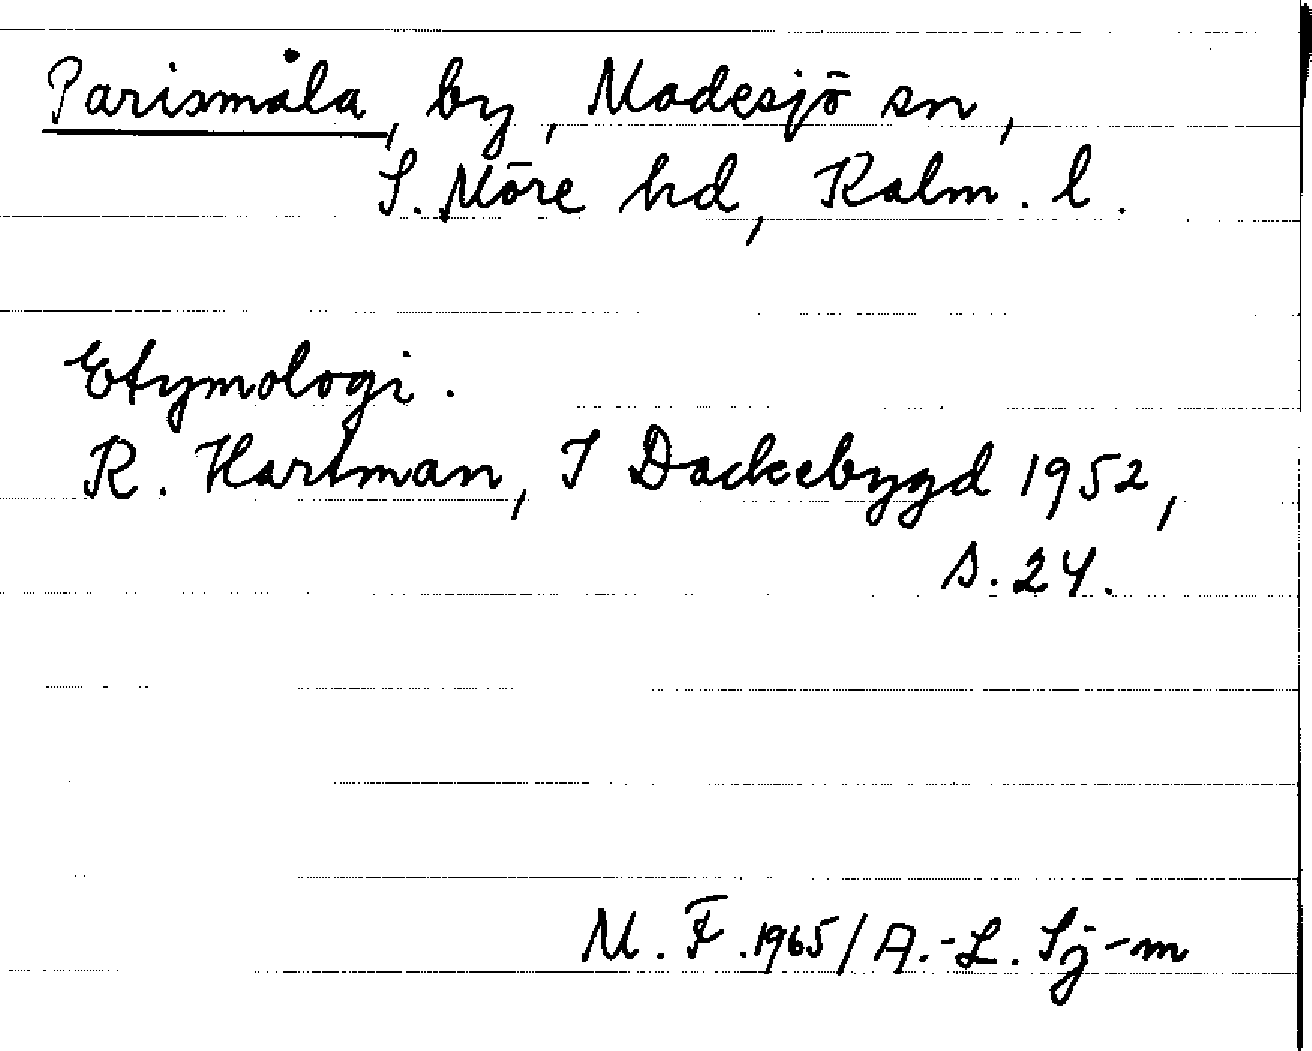 Parismåla, by, Madesjö sn,
S. Möre hd, Kalm. l.
Etymologi.
R. Hartman, I Dackebygd 1952,
s. 24.
M. F. 1965/A.-L. Sj-m